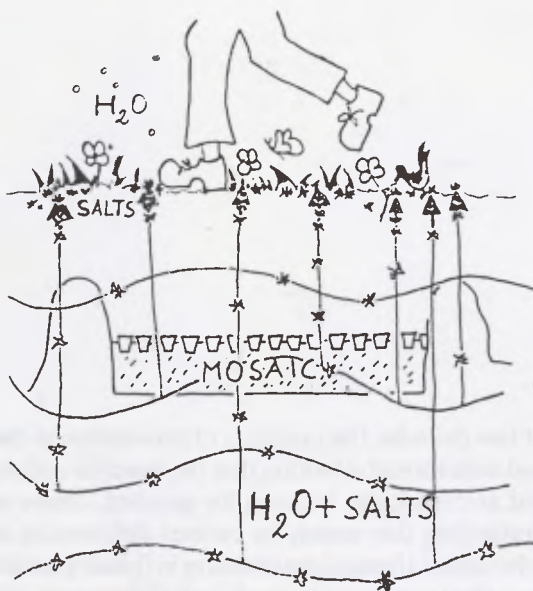 H₂O
SALTS
MOSAIC
H₂O + SALTS